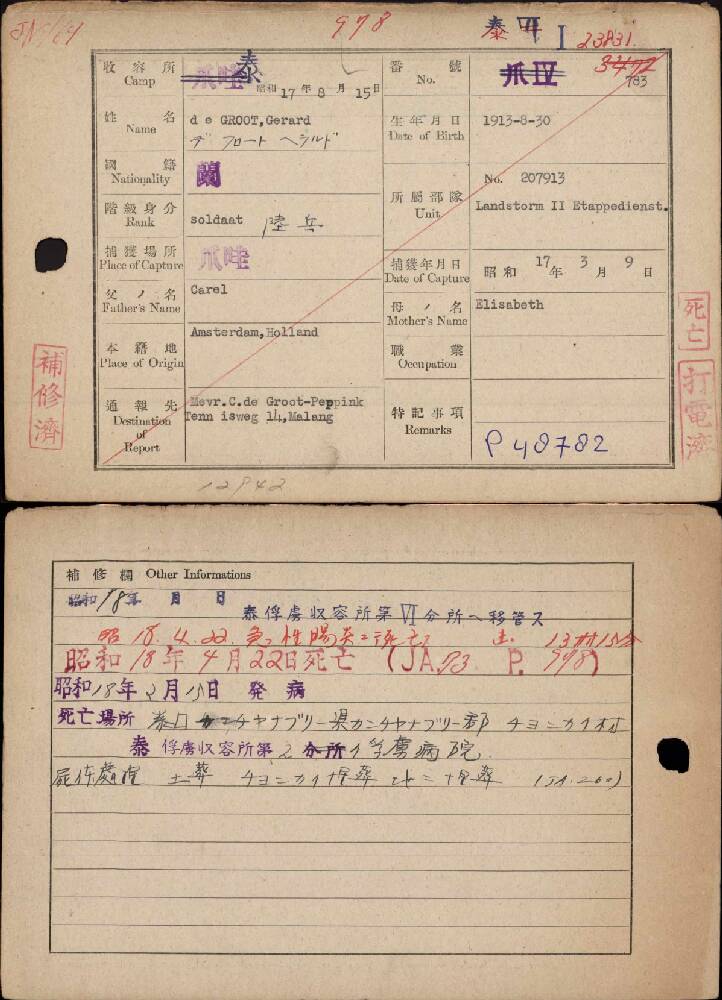 978
泰 VI I 23831
収容所 Camp 爪哇 泰 昭和17年8月15日
番號 No. 爪IV 3472 783
姓名 Name de GROOT,Gerard
生年月日 Date of Birth 1913-8-30
國籍 Nationality 蘭
所屬部隊 Unit No. 207913
Landstorm II Etappedienst.
階級身分 Rank soldaat 陸兵
捕獲場所 Place of Capture 爪哇
捕獲年月日 Date of Capture 昭和 17年 3月 9日
父ノ名 Father's Name Carel
母ノ名 Mother's Name Elisabeth
本籍地 Place of Origin Amsterdam,Holland
職業 Occupation
通報先 Destination of Report Mevr.C.de Groot-Peppink
Tenn isweg 14,Malang
特記事項 Remarks P48782
補修濟
死亡
打電濟
12942
補修欄 Other Informations
昭和18年 月 日
泰俘虜収容所第VI分所ヘ移管ス
昭18.4.22.急性腸炎ニ死亡 13時15分
昭和18年4月22日死亡 (JA.93 P. 978)
昭和18年2月15日 発病
死亡場所 カンチヤナブリー県カンチヤナブリー郡 チヨンカイ村
泰俘虜収容所第2分所 俘虜病院
屍体處理 土葬 チヨンカイ埋葬 埋葬